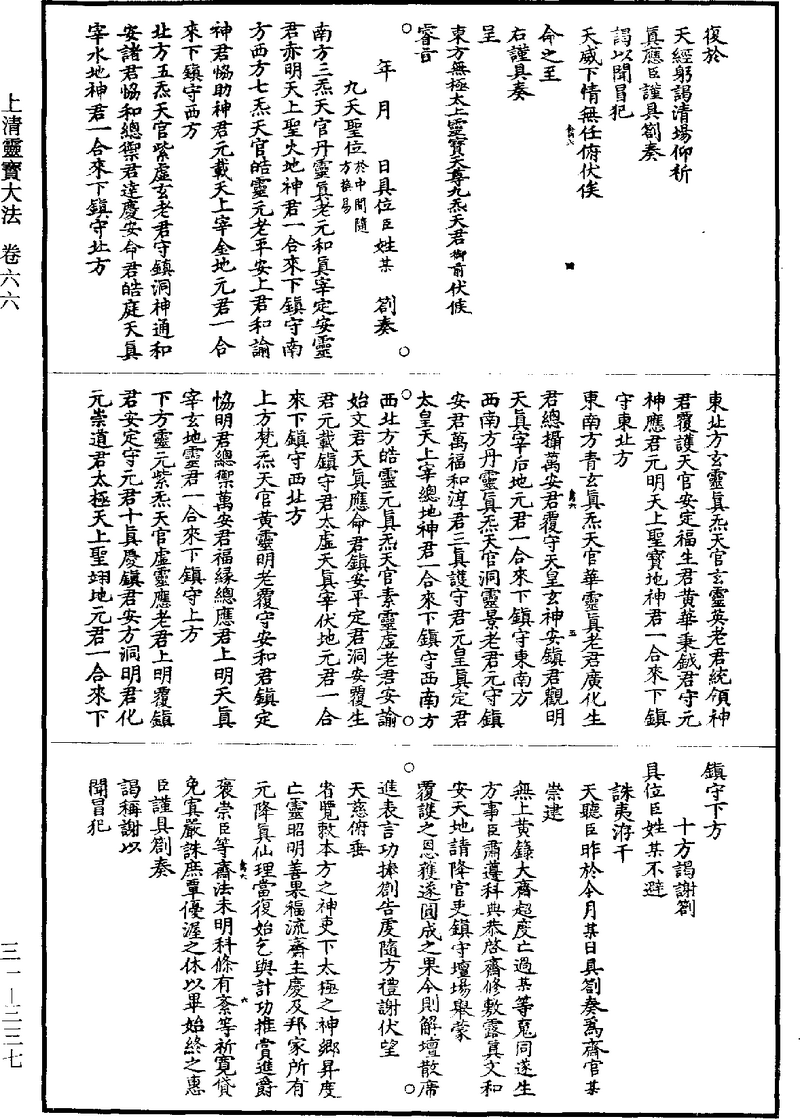 上清靈寶大法　卷六六
三一—三三七
復於
天經躬謁清場仰祈
眞應臣謹具劄奏
謁以聞冒犯
天威下情無任俯伏俟
命之至
右謹具奏
呈
東方無極太上靈寶天尊九炁天君御前伏候
睿旨
年　月　　日具位臣姓某　劄奏
九天聖位於中間隨方換易
南方三炁天官丹靈眞老元和眞宰定安靈
君赤明天上聖火地神君一合來下鎮守南
方西方七炁天官皓靈元老平安上君和論
神君恊助神君元載天上宰金地元君一合
來下鎮守西方
北方五炁天官紫虛玄老君守鎮洞神通和
安諸君恊和總禦君達慶安命君皓庭天眞
宰水地神君一合來下鎮守北方
東北方玄靈眞炁天官玄靈英老君統領神
君覆護天官安定福生君黃華秉鉞君守元
神應君元明天上聖寶地神君一合來下鎮
守東北方
東南方青玄眞炁天官華靈眞老君廣化生
君總攝萬安君覆守天皇玄神安鎮君觀明
天眞宰后地元君一合來下鎮守東南方
西南方丹靈眞炁天官洞靈景老君元守鎮
安君萬福和淳君三眞護守君元皇眞定君
太皇天上宰總地神君一合來下鎮守西南方
西北方皓靈元眞炁天官素靈虛老君安論
始文君天眞應命君鎮安平定君洞安覆生
君元載鎮守君太虛天眞宰伏地元君一合
來下鎮守西北方
上方梵炁天官黃靈明老覆守安和君鎮定
恊明君總禦萬安君福緣總應君上明天眞
宰玄地靈君一合來下鎮守上方
下方靈元紫炁天官虛靈應老君上明覆鎮
君安定守元君十眞慶鎮君安方洞明君化
元崇道君太極天上聖翊地元君一合來下
鎮守下方
十方謁謝劄
具位臣姓某不避
誅夷洊干
天聽臣昨於今月某日具劄奏爲齋官某
崇建
無上黃籙大齋超度亡過某等寃同遂生
方事臣肅遵科典恭啓齋修敷露眞文和
安天地請降官吏鎮守壇場舉蒙
覆護之恩獲遂圓成之果今則解壇散席
進表言功捧劄告虔隨方禮謝伏望
天慈俯垂
省覽敕本方之神吏下太極之神鄉昇度
亡靈昭明善果福流齋主慶及邦家所有
元降眞仙理當復始乞與計功推賞進爵
襃崇臣等齋法未明科條有紊等祈寬貸
免寘嚴誅庶覃優渥之休以畢始終之惠
臣謹具劄奏
謁稱謝以
聞冒犯